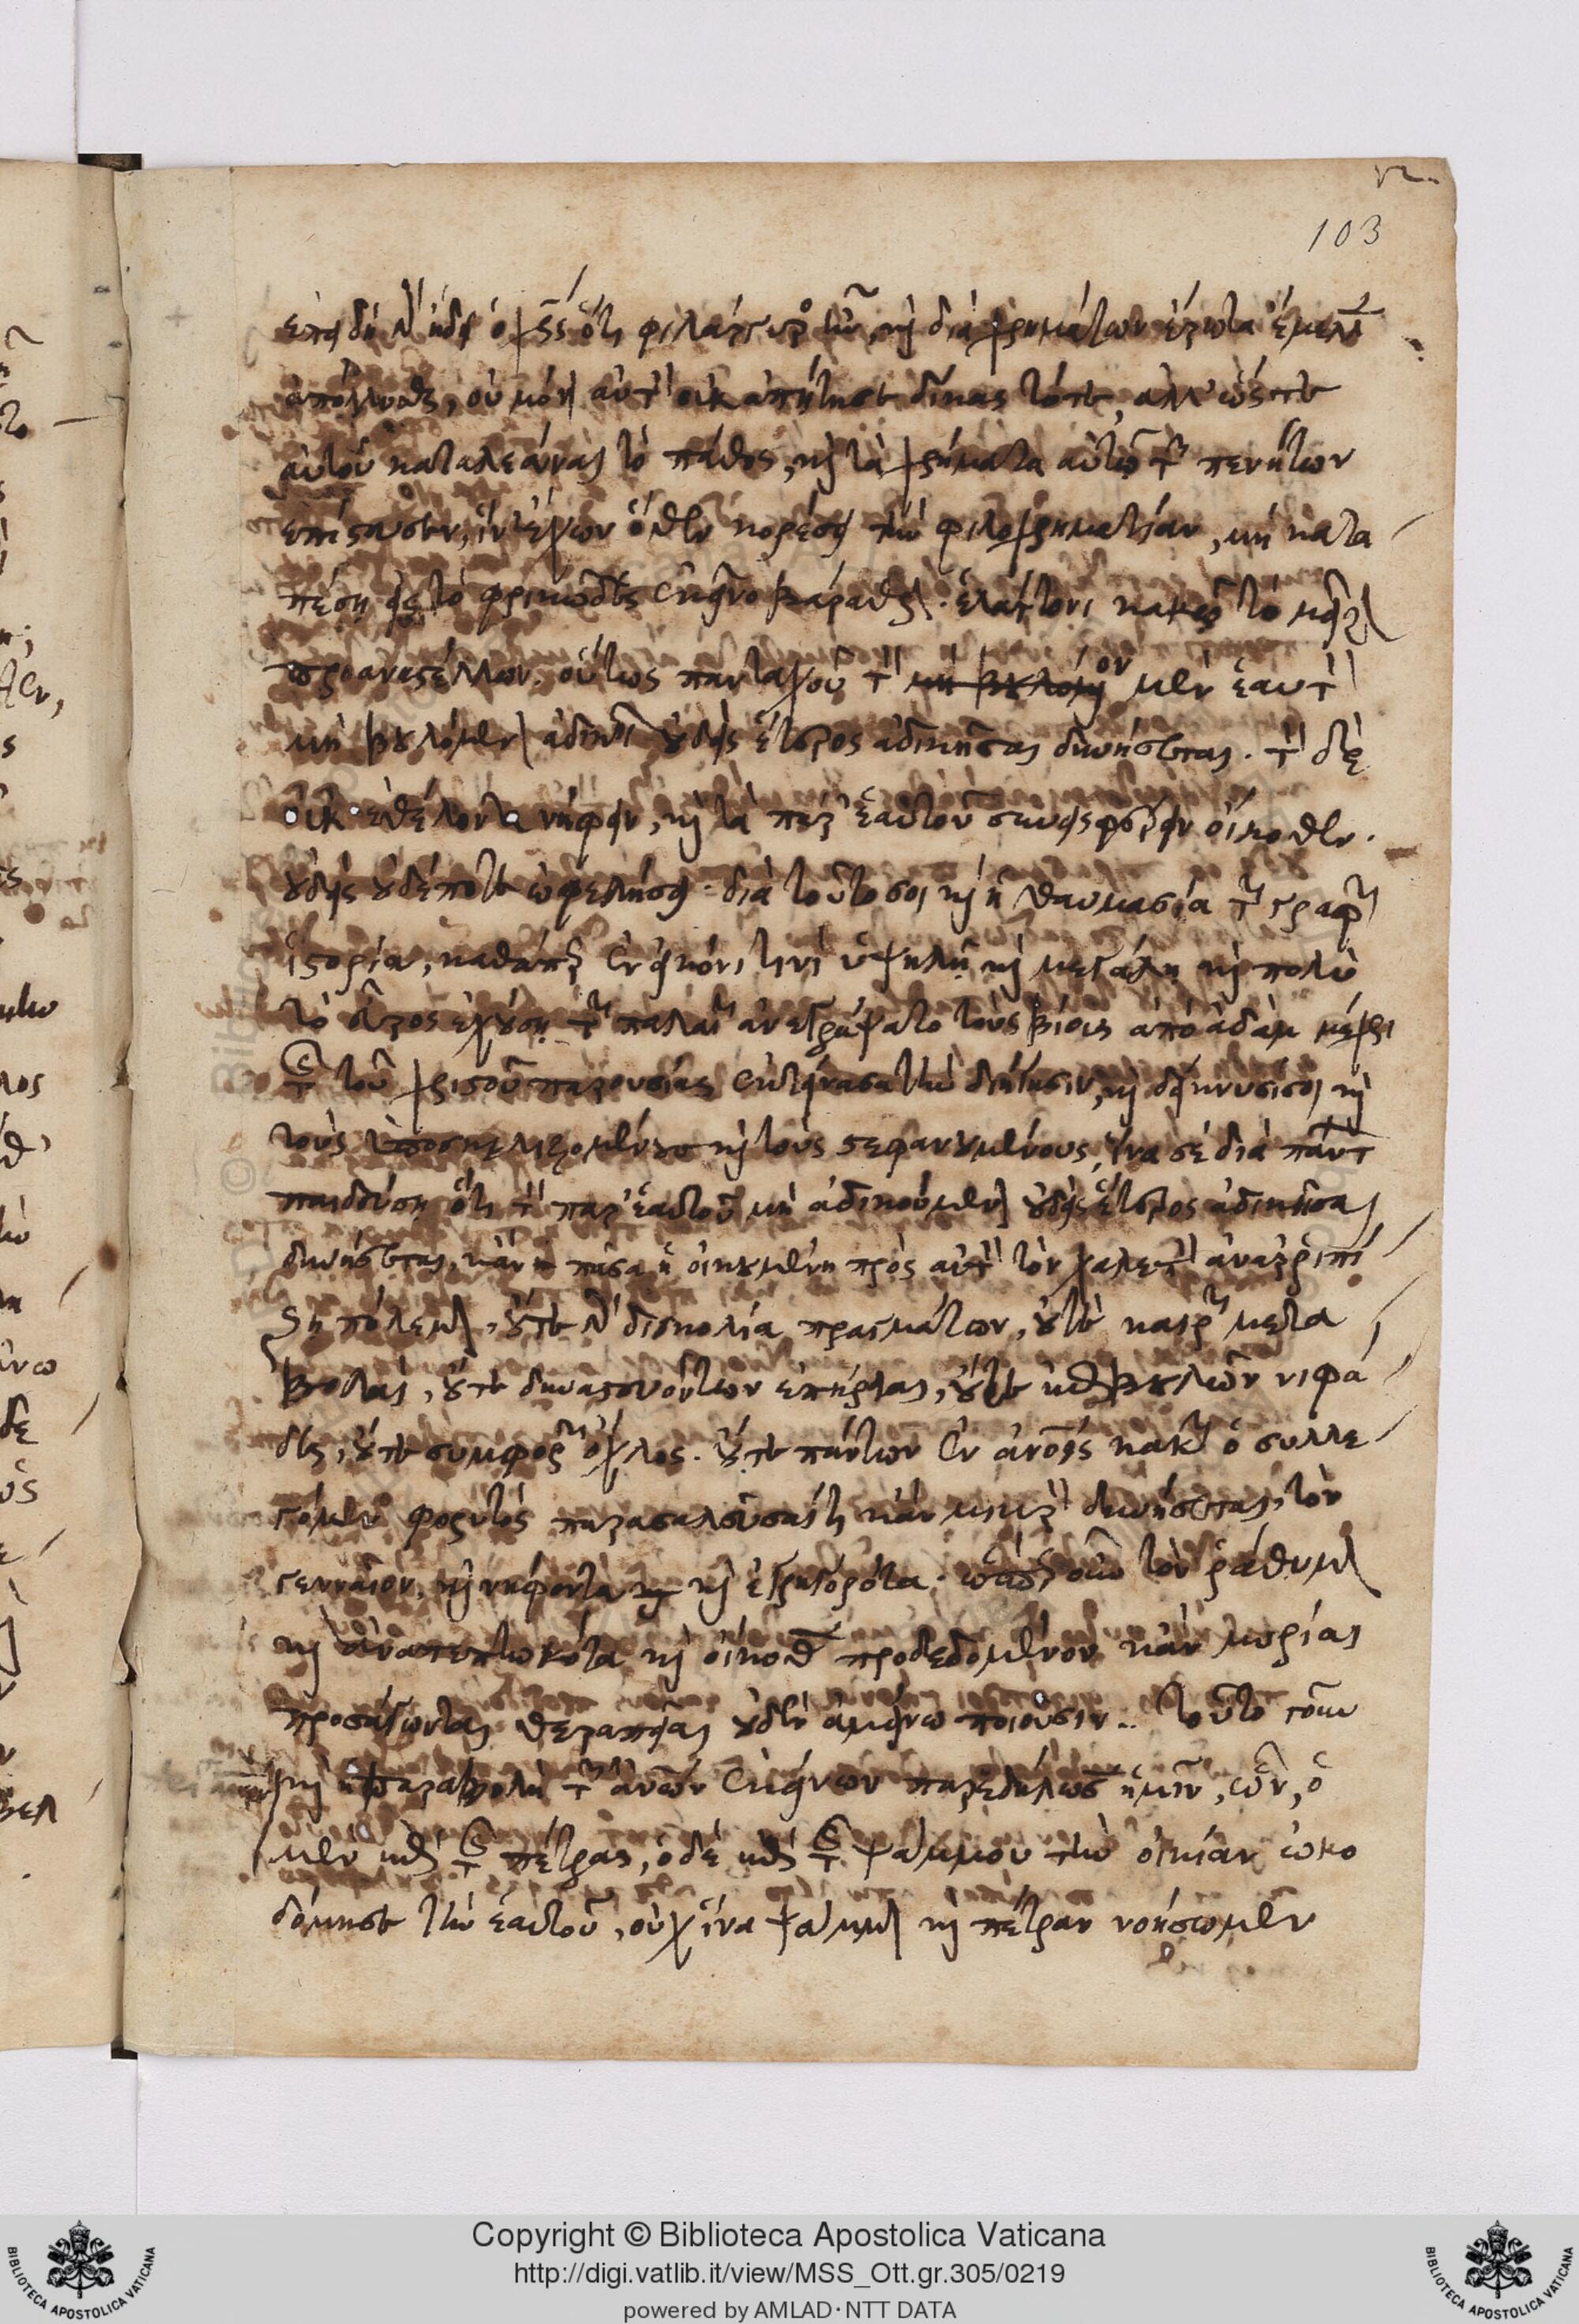 103
ἐπειδὴ γὰρ ἤδει ὁ χς ὅτι φιλάργυρος ἦν, καὶ διὰ χρημάτων ἔρωτα ἔμελλεν
ἀπόλλυσθαι, οὐ μόνον αὐτὸν οὐκ ἀπῄτησε δίκας τότε, ἀλλ' ὥστε
αὐτοῦ καταλεᾶναι τὸ πάθος, καὶ τὰ χρήματα αὐτῷ τῶν πενήτων
ἐπίστευσεν, ἵν' ἔχων ὅθεν κορέσει τὴν φιλοχρηματίαν, μὴ κατα
πέσῃ εἰς τὸ φρικῶδες ἐκεῖνο βάραθρον. ἐλάττονι κακῷ τὸ μεῖζον
προαναστέλλων. οὕτως πανταχοῦ τὸν μὲν ἑαυτὸν
μὴ βουλόμενον ἀδικεῖν οὐδεὶς ἕτερος ἀδικῆσαι δυνήσεται. τὸν δὲ
οὐκ ἐθέλοντα νήφειν, καὶ τὰ παρ' ἑαυτοῦ συνεισφέρειν οἴκοθεν.
οὐδεὶς οὐδέποτε ὠφελήσει. διὰ τοῦτο σοι καὶ ἡ θαυμασία τῶν γραφῶν
ἱστορία, καθάπερ ἐν εἰκόνι τινὶ ὑψηλῇ καὶ μεγάλη καὶ πολὺ
τὸ εὖρος ἐχούσῃ τῶν παλαιῶν ἀνεγράψατο τοὺς βίους ἀπὸ ἀδὰμ μέχρι
τῆς τοῦ χριστοῦ παρουσίας ἐκτείνασα τὴν διήγησιν, καὶ δείκνυσί σοι καὶ
τοὺς ὑποσκελιζομένους καὶ τοὺς στεφανουμένους, ἵνα σὲ διὰ πάντων
παιδεύσῃ ὅτι τὸν παρ' ἑαυτοῦ μὴ ἀδικούμενον οὐδεὶς ἕτερος ἀδικῆσαι
δυνήσεται, κἂν πᾶσα ἡ οἰκουμένη πρὸς αὐτὸν τὸν χαλεπὸν ἀναρριπί
ζῃ πόλεμον. οὔτε γὰρ δυσκολία πραγμάτων, οὔτε καιρῶν μετα
βολαὶ, οὔτε δυναστευόντων ἐπήρειαι, οὔτε ἐπιβουλῶν νιφά
δες, οὔτε συμφορῶν ὄχλος. οὔτε πάντων ἐν ἀνοις κακῶν ὁ συλλε
γόμενος φορυτὸς παρασαλεῦσαί τι κἂν μικρὸν δυνήσεται, τὸν
γενναῖον, καὶ νήφοντα καὶ ἐγρηγορότα. ὥσπερ οὖν τὸν ῥάθυμον
καὶ ἀναπεπτωκότα καὶ οἴκοθεν προδεδομένον κἂν μυρίαι
προσάγωνται θεραπεῖαι οὐδὲν ἀμείνω ποιοῦσιν. τοῦτο γοῦν
καὶ ἡ παραβολὴ τῶν ἀνων ἐκείνων παρεδήλωσεν ἡμῖν, ὧν, ὁ
μὲν ἐπὶ τῆς πέτρας, ὁ δὲ ἐπὶ τῆς ψάμμου τὴν οἰκίαν ὠκο
δόμησε τὴν ἑαυτοῦ, οὐχ ἵνα ψάμμον καὶ πέτραν νοήσωμεν
Copyright © Biblioteca Apostolica Vaticana
http://digi.vatlib.it/view/MSS_Ott.gr.305/0219
powered by AMLAD·NTT DATA
BIBLIOTECA APOSTOLICA VATICANA
BIBLIOTECA APOSTOLICA VATICANA